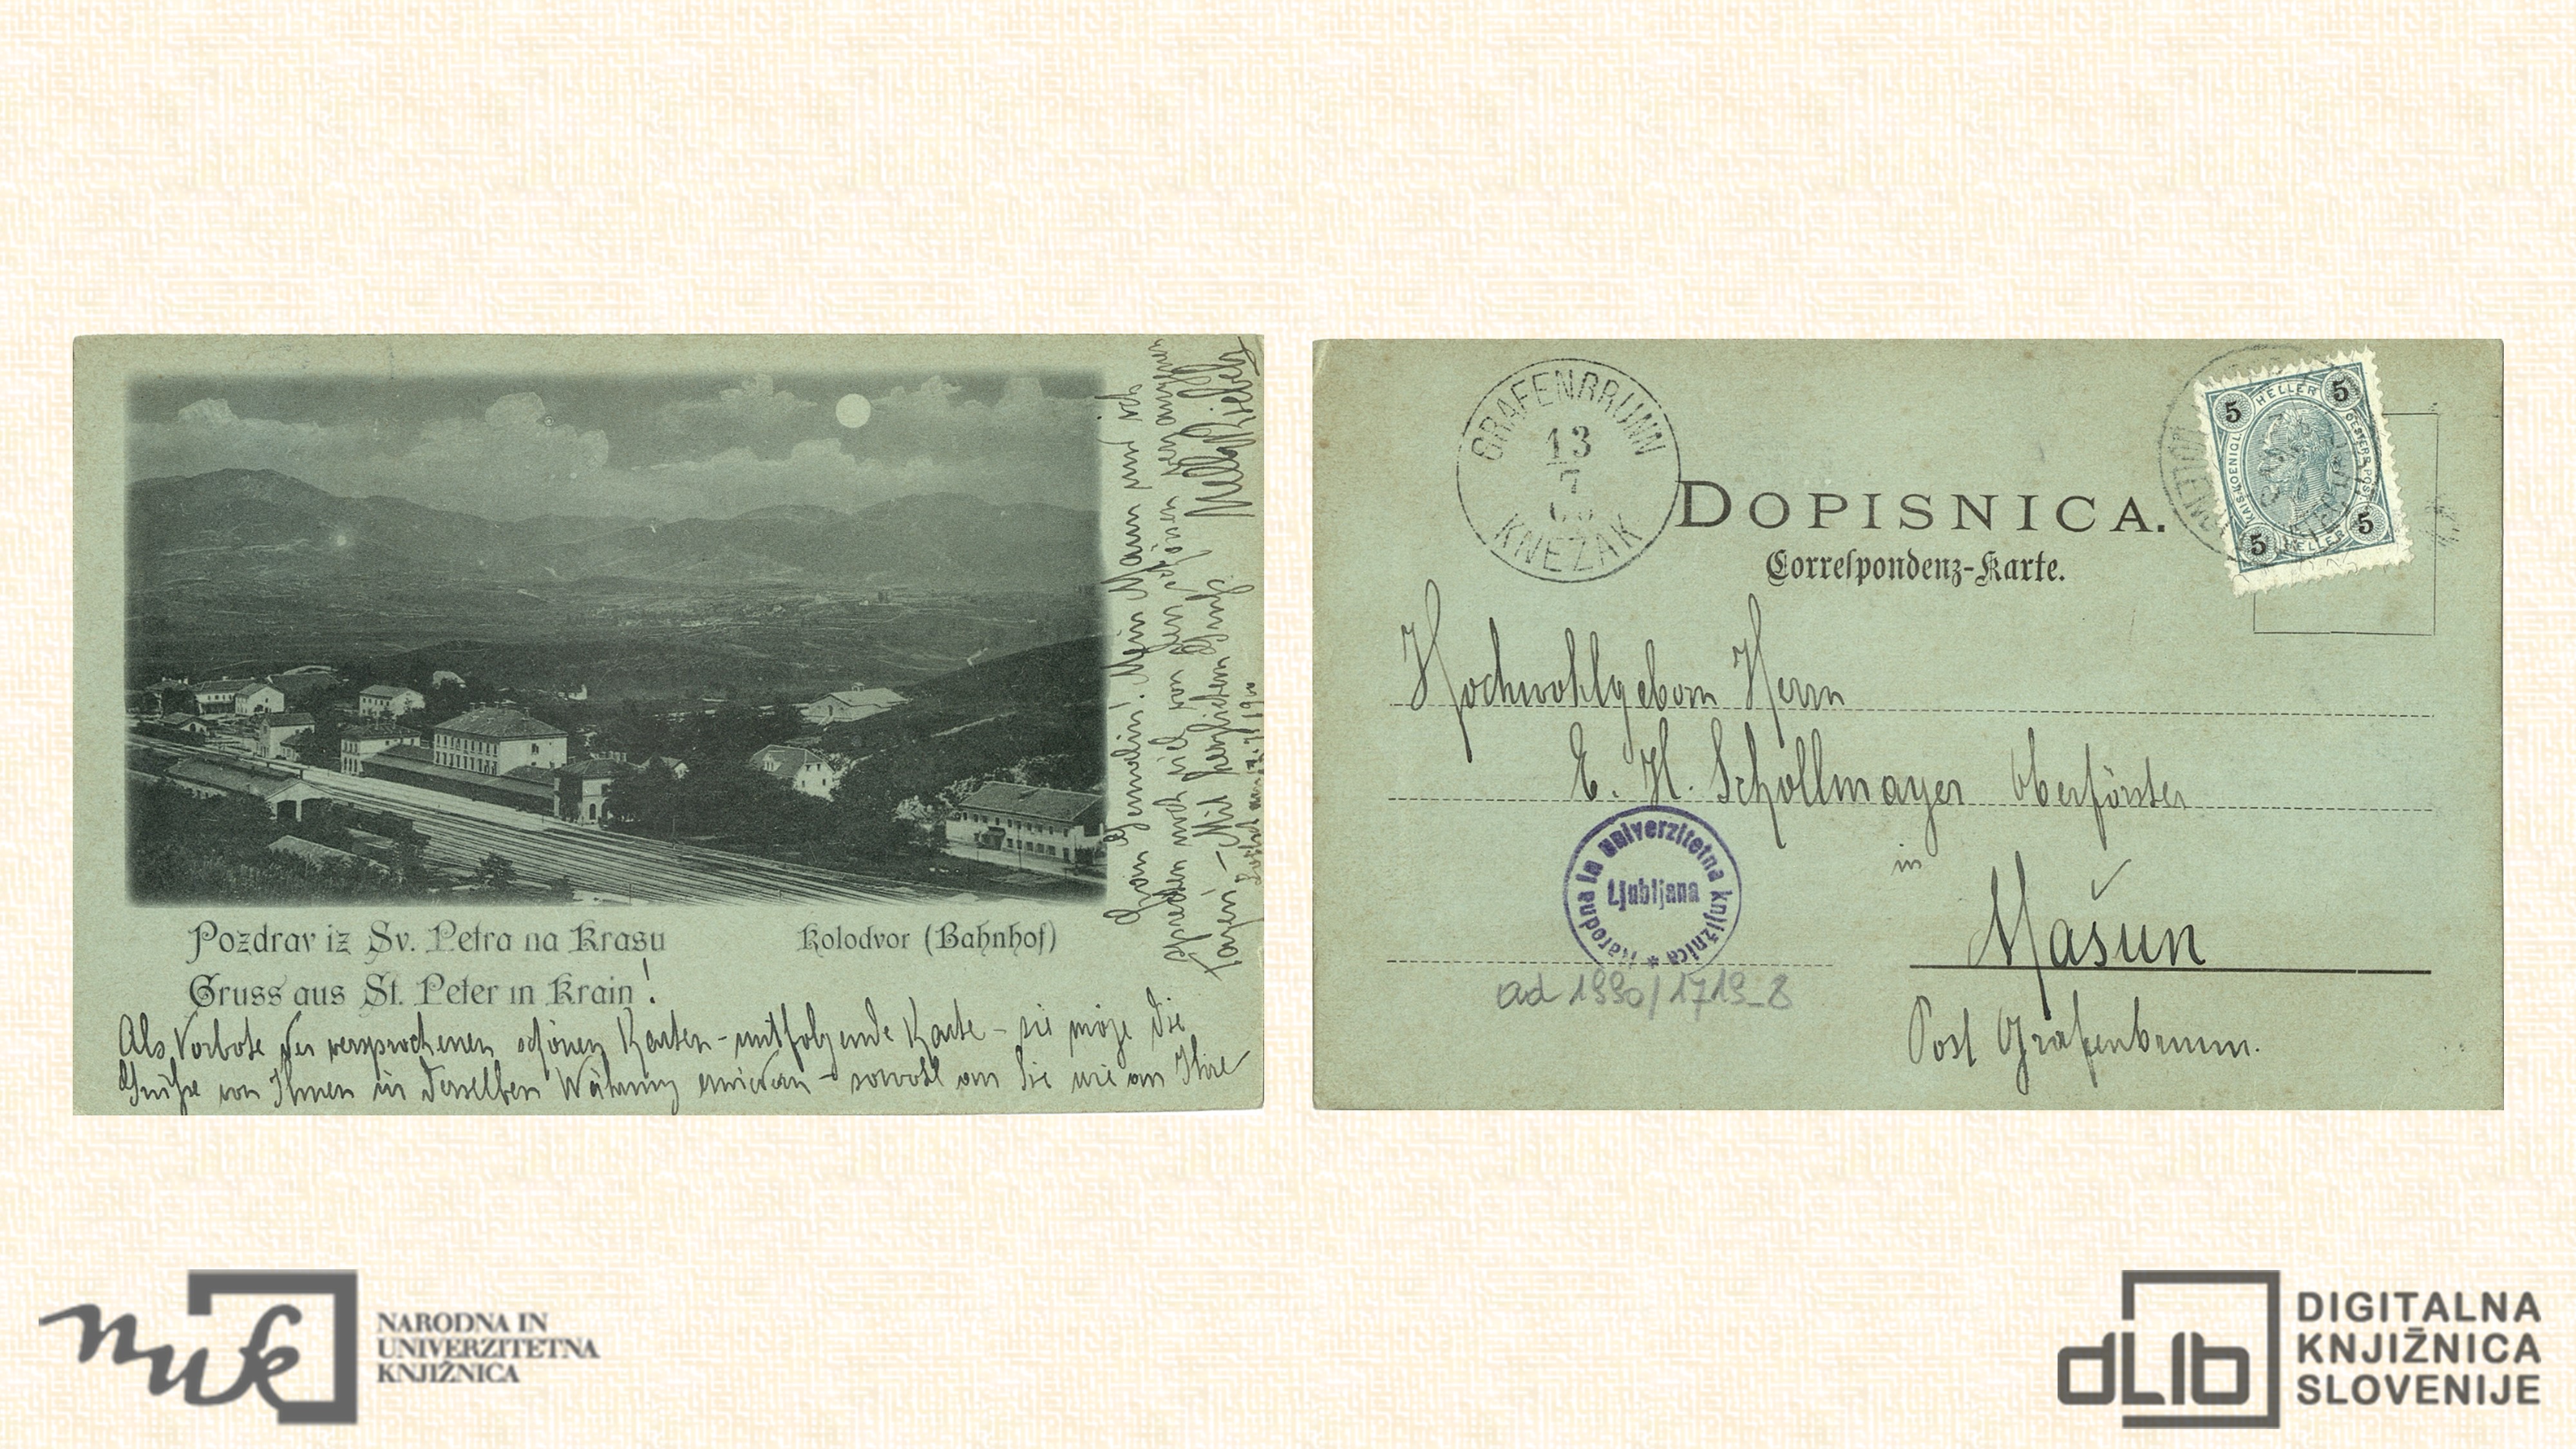 Pozdrav iz Sv. Petra na Krasu
Kolodvor (Bahnhof)
Gruss aus St. Peter in Krain!
Als Vorbote der versprochenen schönen Karten - mitfolgende Karte - sie möge die
Grüße von Ihnen in derselben Währung erwidern - sowohl an Sie wie an Ihre
Frau Gemahlin! Mein Mann und ich
sprechen noch viel von den schönen
Tagen - Mit herzlichen
GRAFENBRUNN
13
7
KNEŽAK
DOPISNICA.
Correspondenz-Karte.
5 HELLER 5
KAIS. KOENIGL. OESTERR. POST
5 HELLER 5
Hochwohlgeborn Herrn
E. H. Schollmayer Oberförster
in
Mašun
Post Grafenbrunn.
Narodna in univerzitetna knjižnica *
Ljubljana
ad 1990/1719_8
nuk
NARODNA IN
UNIVERZITETNA
KNJIŽNICA
dLib
DIGITALNA
KNJIŽNICA
SLOVENIJE